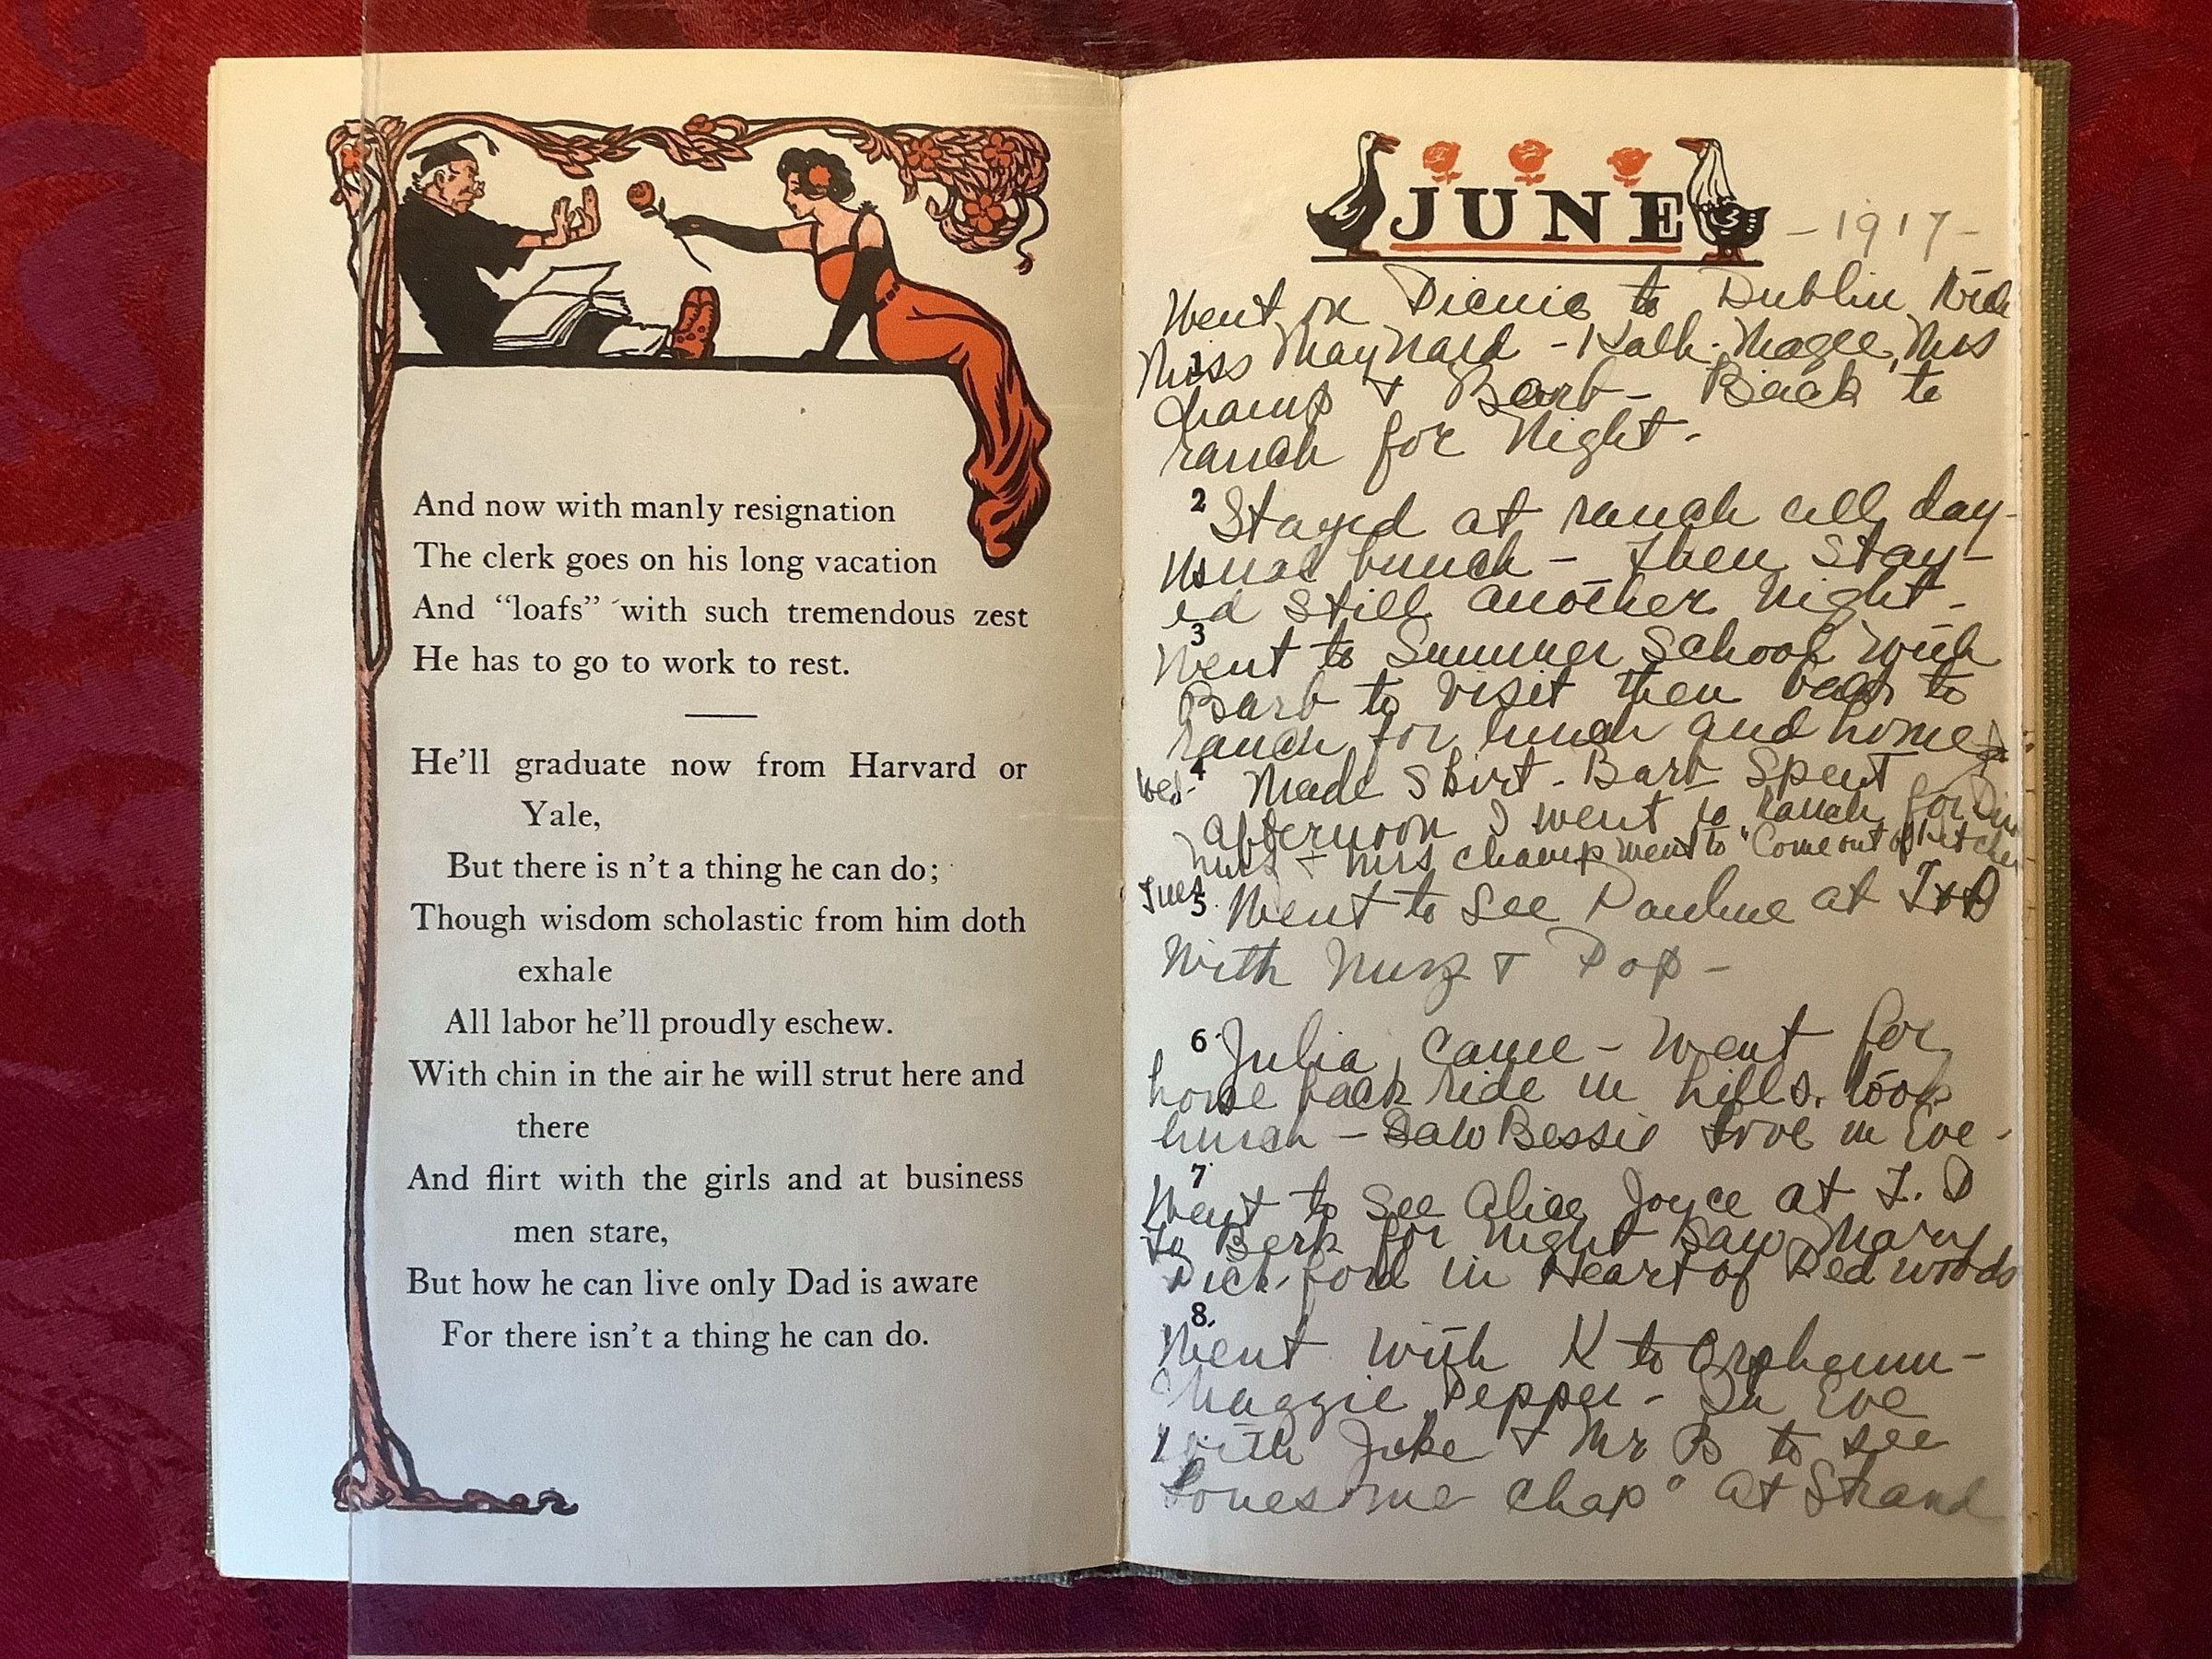 And now with manly resignation
The clerk goes on his long vacation
And “loafs” with such tremendous zest
He has to go to work to rest.
He’ll graduate now from Harvard or
Yale,
But there is n’t a thing he can do;
Though wisdom scholastic from him doth
exhale
All labor he’ll proudly eschew.
With chin in the air he will strut here and
there
And flirt with the girls and at business
men stare,
But how he can live only Dad is aware
For there isn’t a thing he can do.
JUNE -1917-
Went on Picnic to Dublin with
1
Miss Maynard - Kath. Magee, Mrs
Champ + Barb - Back to
ranch for Night -
2 Stayed at ranch all day -
Usual bunch - Then Stay-
ed Still another Night -
3
Went to Summer School with
Barb to visit then back to
ranch for lunch and home
4 Made Shirt - Barb Spent
afternoon I went to ranch for Din
+ Mrs Champ went to "Come out of Kitchen
Tues
5 Went to See Pauline at T+D
With + Pop -
6 Julia came - Went for
horse back ride in hills. took
lunch - Saw Bessie Love in Eve -
7
Went to See Alice Joyce at T. D
To Berk for Night Saw Mary
Pickford in Heart of Redwoods
8.
Went with K to Orpheum -
Maggie Pepper - In Eve
With Jake + Mr B to see
Lonesome Chap" at Strand